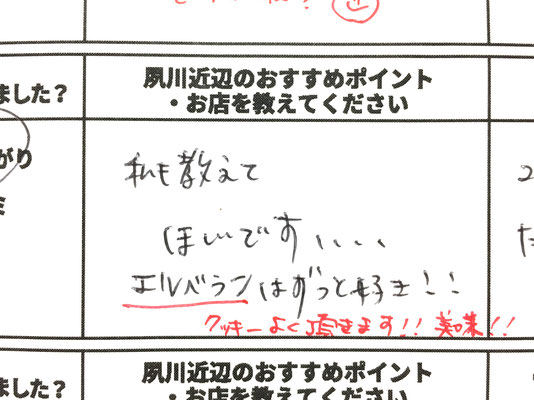 ました?
夙川近辺のおすすめポイント
・お店を教えてください
がり
ミ
私も教えて
ほしいです、、、、
エルベランはずっと好き!!
クッキーよく頂きます!!美味!!
ました?
夙川近辺のおすすめポイント
・お店を教えてください